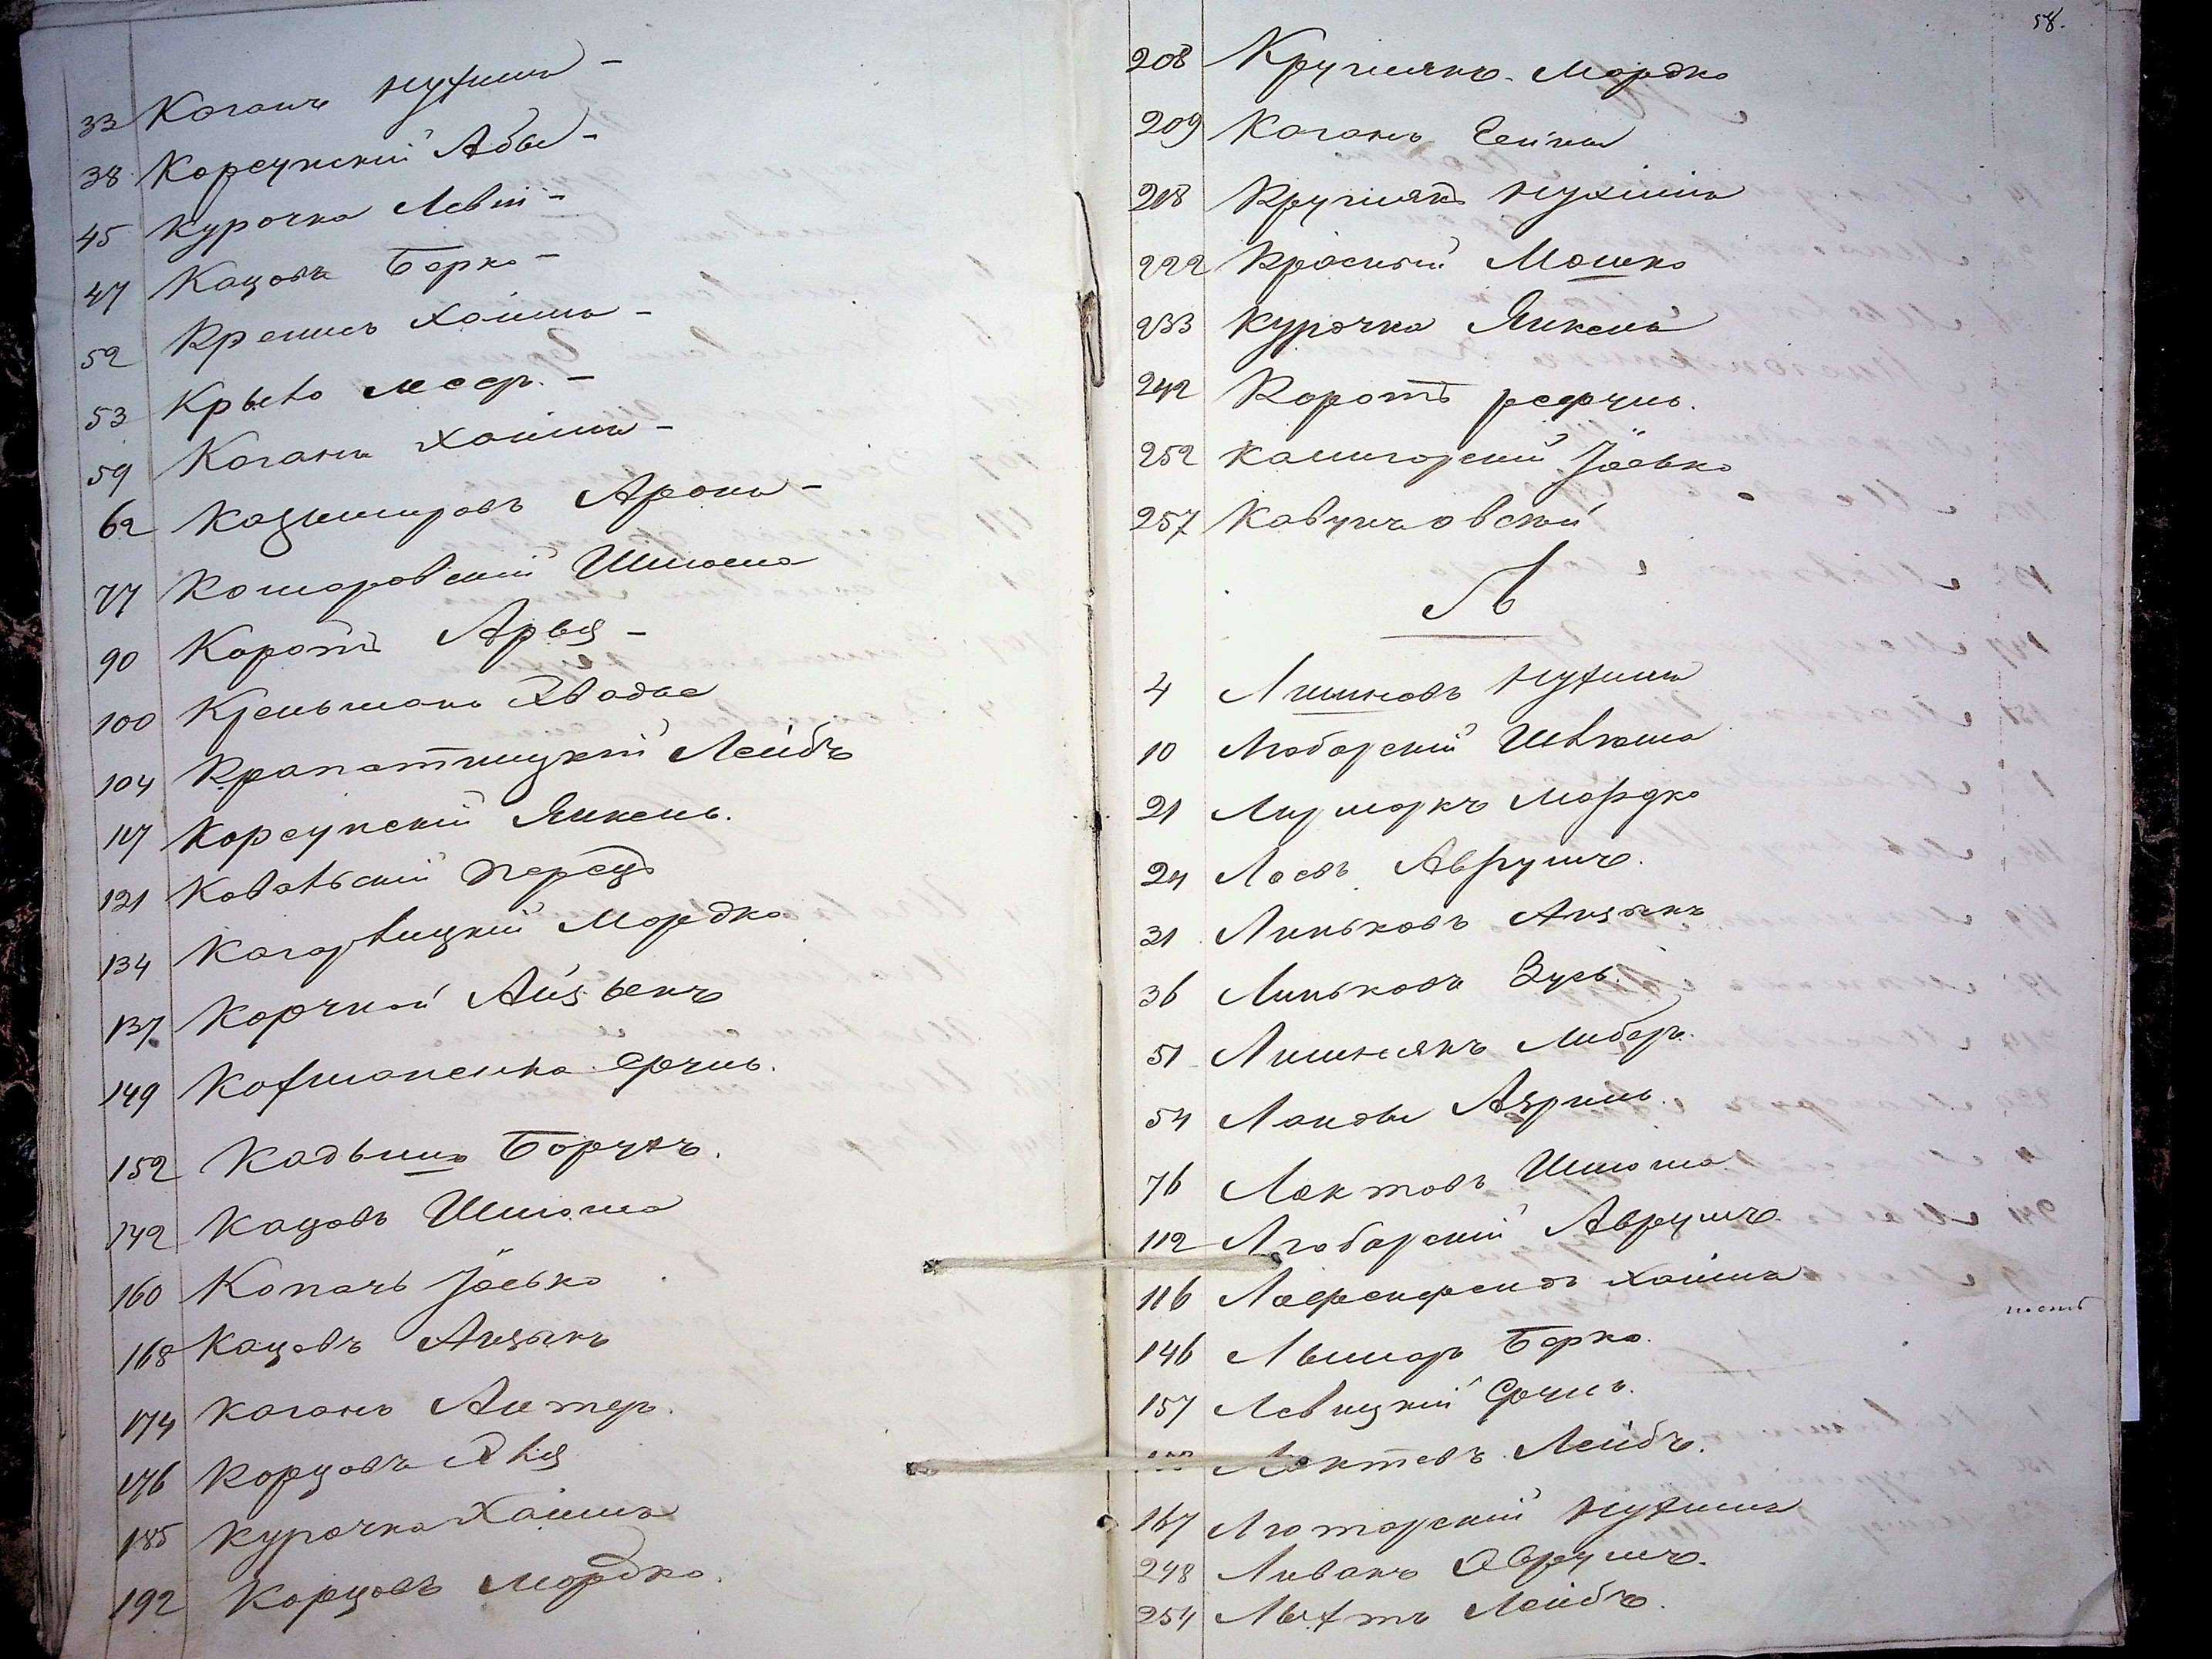 33 Коганъ Нухимъ -
38 Корсунскій Аба -
45 Курочка Левій -
47 Кацовъ Берко -
52 Кремсъ Хаимъ -
53 Меер. -
59 Коганъ Хаимъ -
62 Казимировъ Аронъ -
77 Комаровскій Шліома
90 Коротъ Арья -
100 Крейшманъ
104 Крапатницкій Лейбъ
117 Корсунскій Янкель.
121 Ковальскій Перецъ
134 Когорвицкій Мордко
137 Корчной Айзыкъ
149 Кофманенко Срулъ.
152 Кадышъ Борухъ.
142 Кацовъ Шліома
160 Копачь Іосько
168 Кацовъ Айзыкъ
174 Коганъ Алтеръ.
176 Корцовъ
185 Курочка Хаимъ
192 Корцовъ Мордко.
58.
208 Кругликъ Мордко
209 Коганъ
218 Кругликъ Нухимъ
222 Красный Мошко
233 Курочка Янкель
242 Коротъ
252 Кашгорскій Іосько
257 Кавунловскій
Л
4 Лишновъ Нухимъ
10 Любарскій Шліома
21 Лирмаркъ Мордко
24 Лосвъ Аврумъ.
31 Линьковъ Айзыкъ
36 Линьковъ Зусь.
51 Лишнякъ Либеръ.
54 Ландъ Азрилъ.
76 Локтовъ Шліома
112 Любарскій Аврумъ
116 Лоеренфендъ Хаимъ
146 Лымарь Берко.
157 Левицкій Срулъ.
Локтевъ Лейбъ.
167 Лютарскій Нухимъ
248 Ливакъ Аврумъ.
254 Лыхтъ Лейбъ.